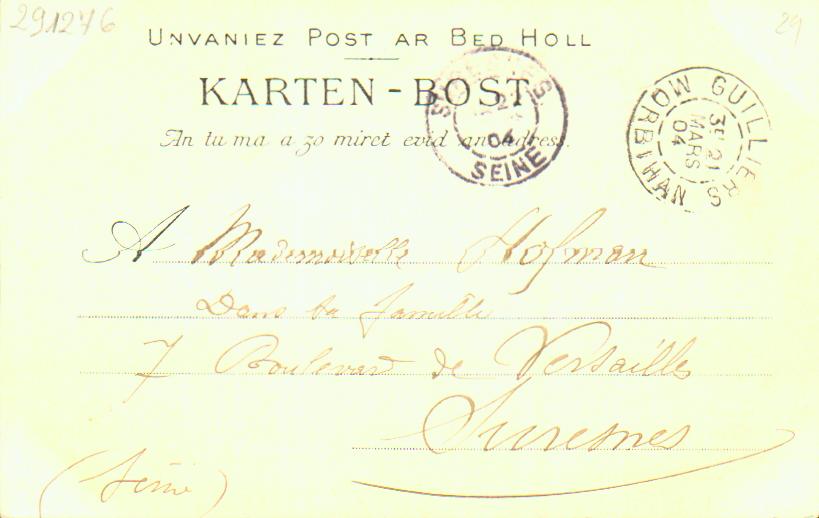 291276
29
UNVANIEZ POST AR BED HOLL
KARTEN-BOST
An tu ma a zo miret evid an adress.
SURESNES
04
SEINE
GUILLIERS
3E 21
MARS
04
MORBIHAN
A Mademoiselle Hofman
Dans sa famille
7 Boulevard de Versailles
Suresnes
(Seine)